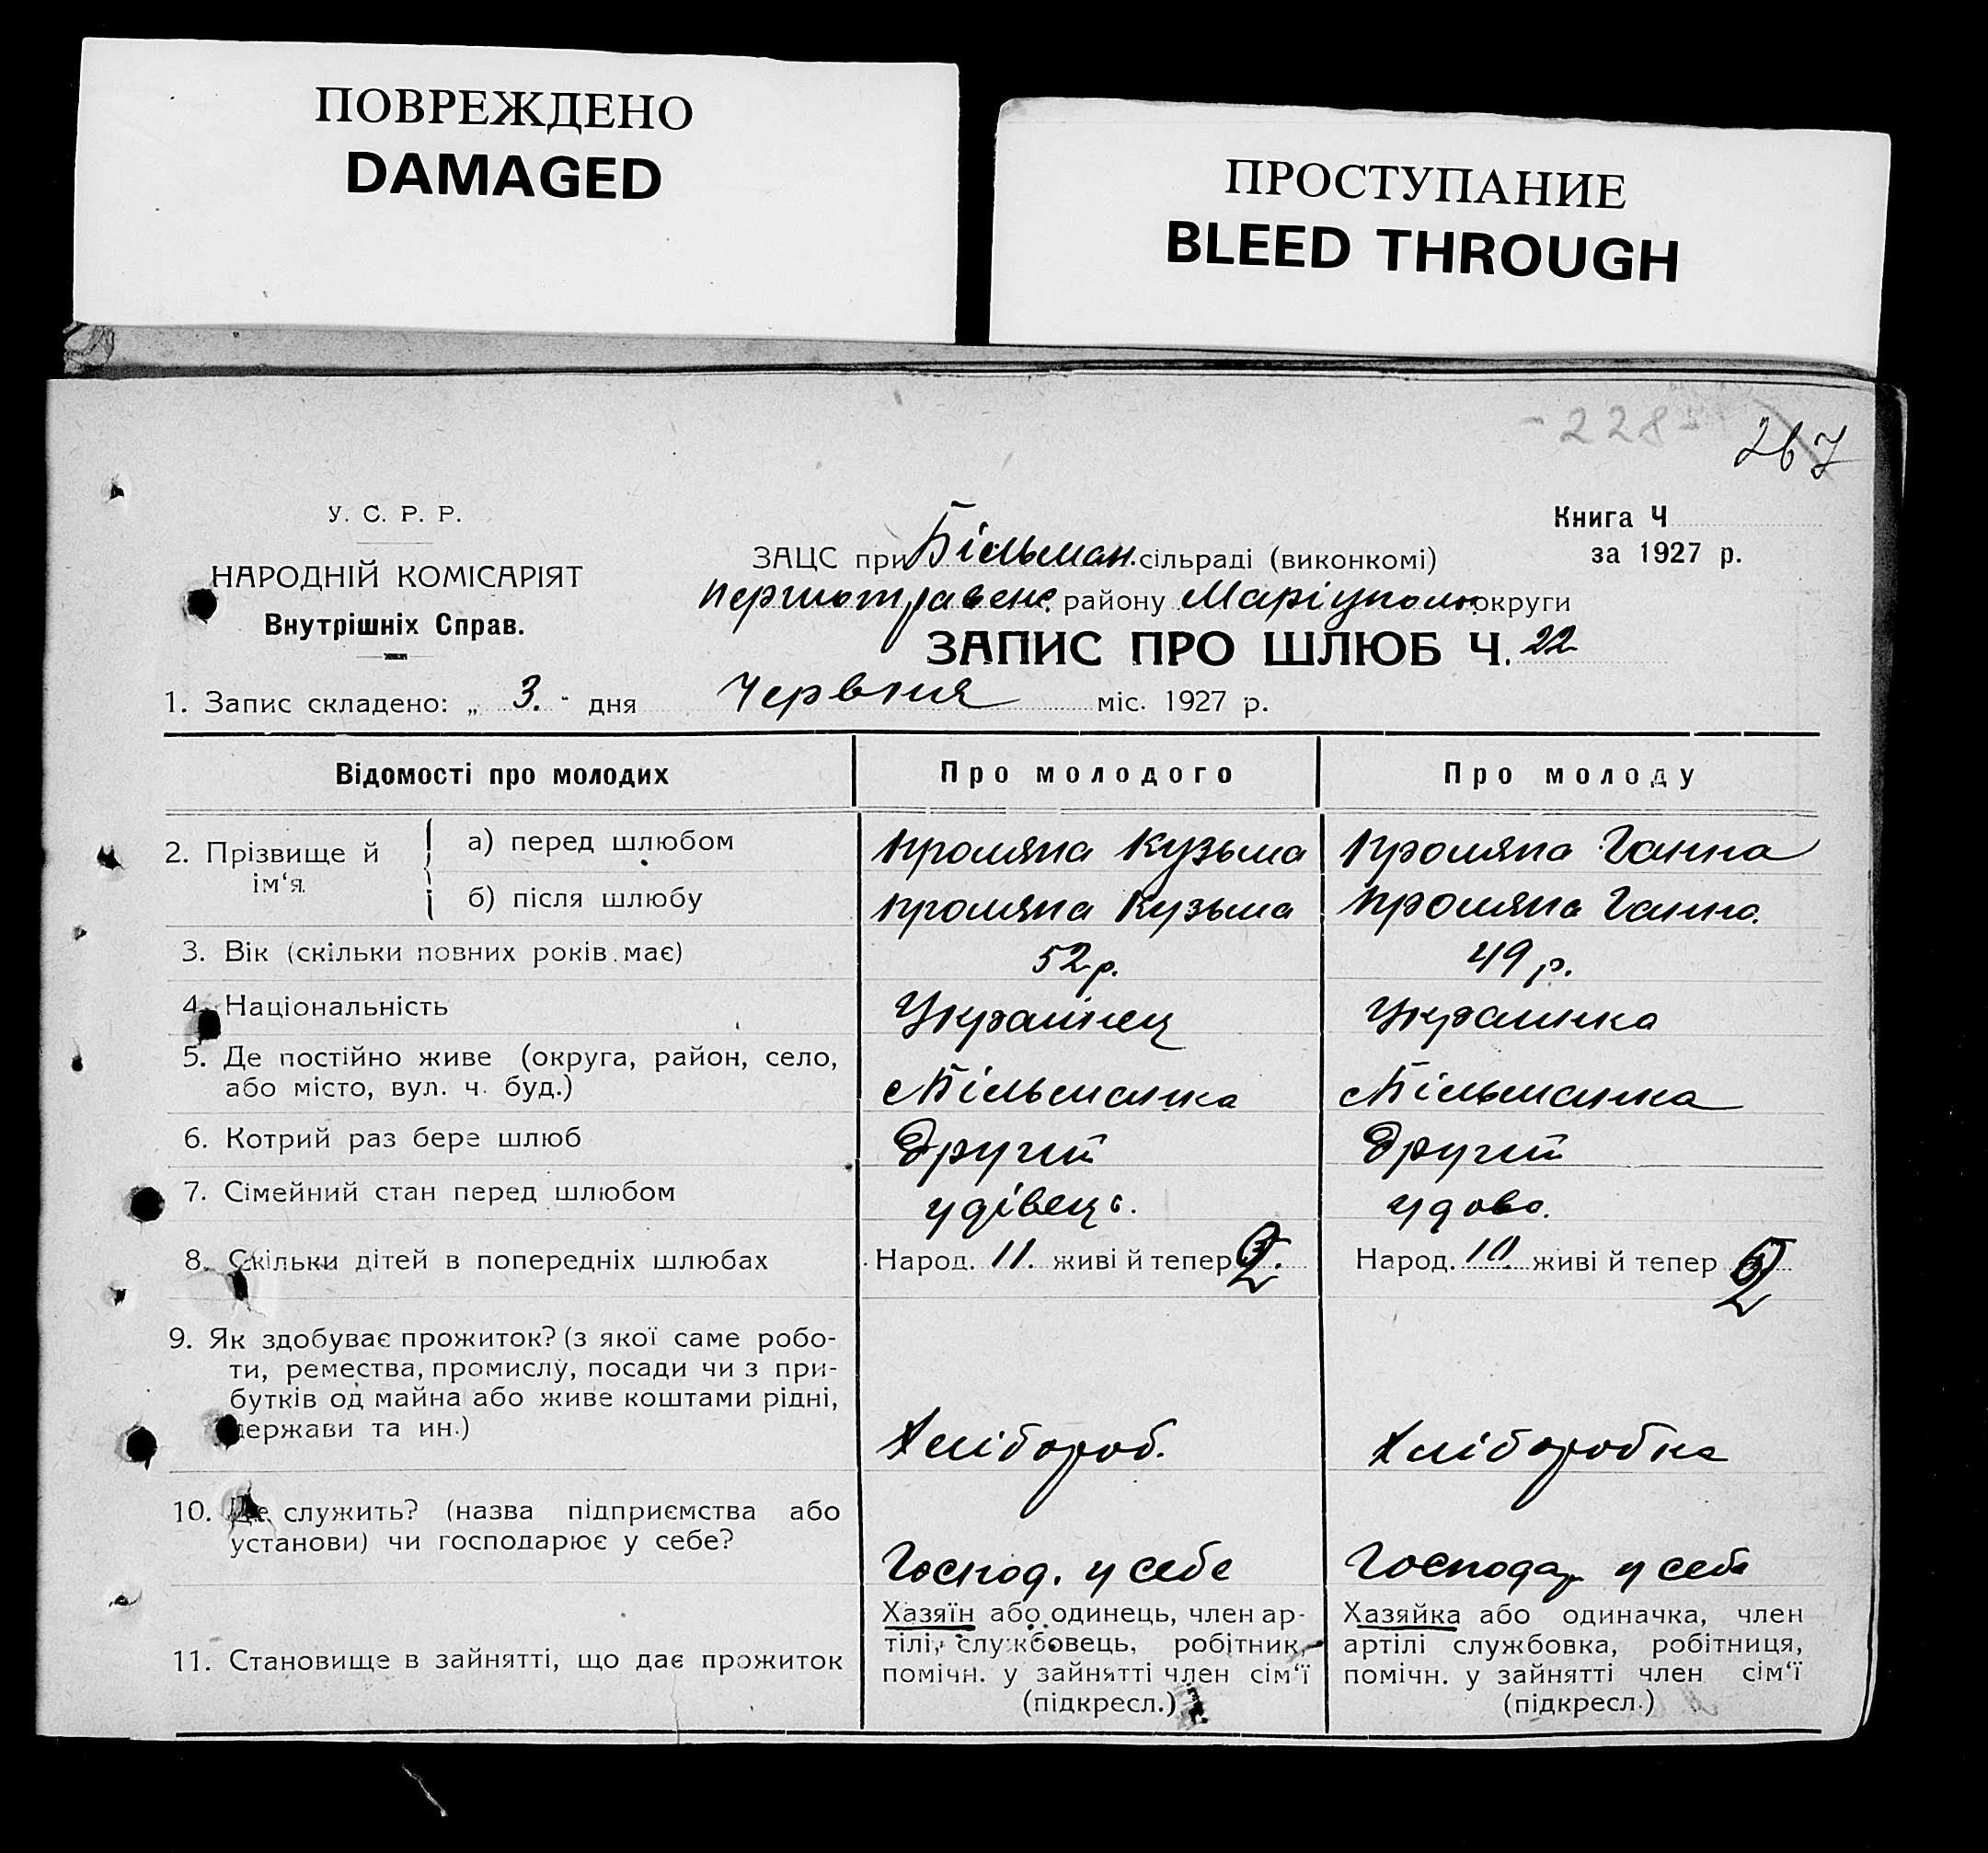 ПОВРЕЖДЕНО
DAMAGED
ПРОСТУПАНИЕ
BLEED THROUGH
- 228
267
У. С. Р. Р.
НАРОДНІЙ КОМІСАРІЯТ
Внутрішніх Справ.
Книга Ч
за 1927 р.
ЗАЦС при Більман. сільраді (виконкомі)
Першотравенс. району Маріуполь. округи
ЗАПИС ПРО ШЛЮБ Ч. 22
1. Запис складено: „ 3. - дня Червня міс. 1927 р.
Відомості про молодих
Про молодого
Про молоду
2. Прізвище й ім‘я.
а) перед шлюбом
Кузьма
Ганна
б) після шлюбу
Кузьма
Ганна.
3. Вік (скільки повних років має)
52 р.
49 р.
4. Національність
Украінец
Украинка
5. Де постійно живе (округа, район, село,
або місто, вул. ч. буд.)
с Більманка
с Більманка
6. Котрий раз бере шлюб
Другий
Другий
7. Сімейний стан перед шлюбом
удівець.
удова.
8. Скільки дітей в попередніх шлюбах
Народ. 11. живі й тепер 2.
Народ. 10. живі й тепер 2
9. Як здобуває прожиток? (з якої саме робо-
ти, ремества, промислу, посади чи з при-
бутків од майна або живе коштами рідні,
держави та ин.)
Хлібороб.
Хліборобка
10. Де служить? (назва підприємства або
установи) чи господарює у себе?
Господ. у себе
Господар у себе
11. Становище в зайнятті, що дає прожиток
Хазяїн або одинець, член ар-
тілі, службовець, робітник,
помічн. у зайнятті член сім‘ї
(підкресл.)
Хазяйка або одиначка, член
артілі службовка, робітниця,
помічн. у зайнятті член сім‘ї
(підкресл.)